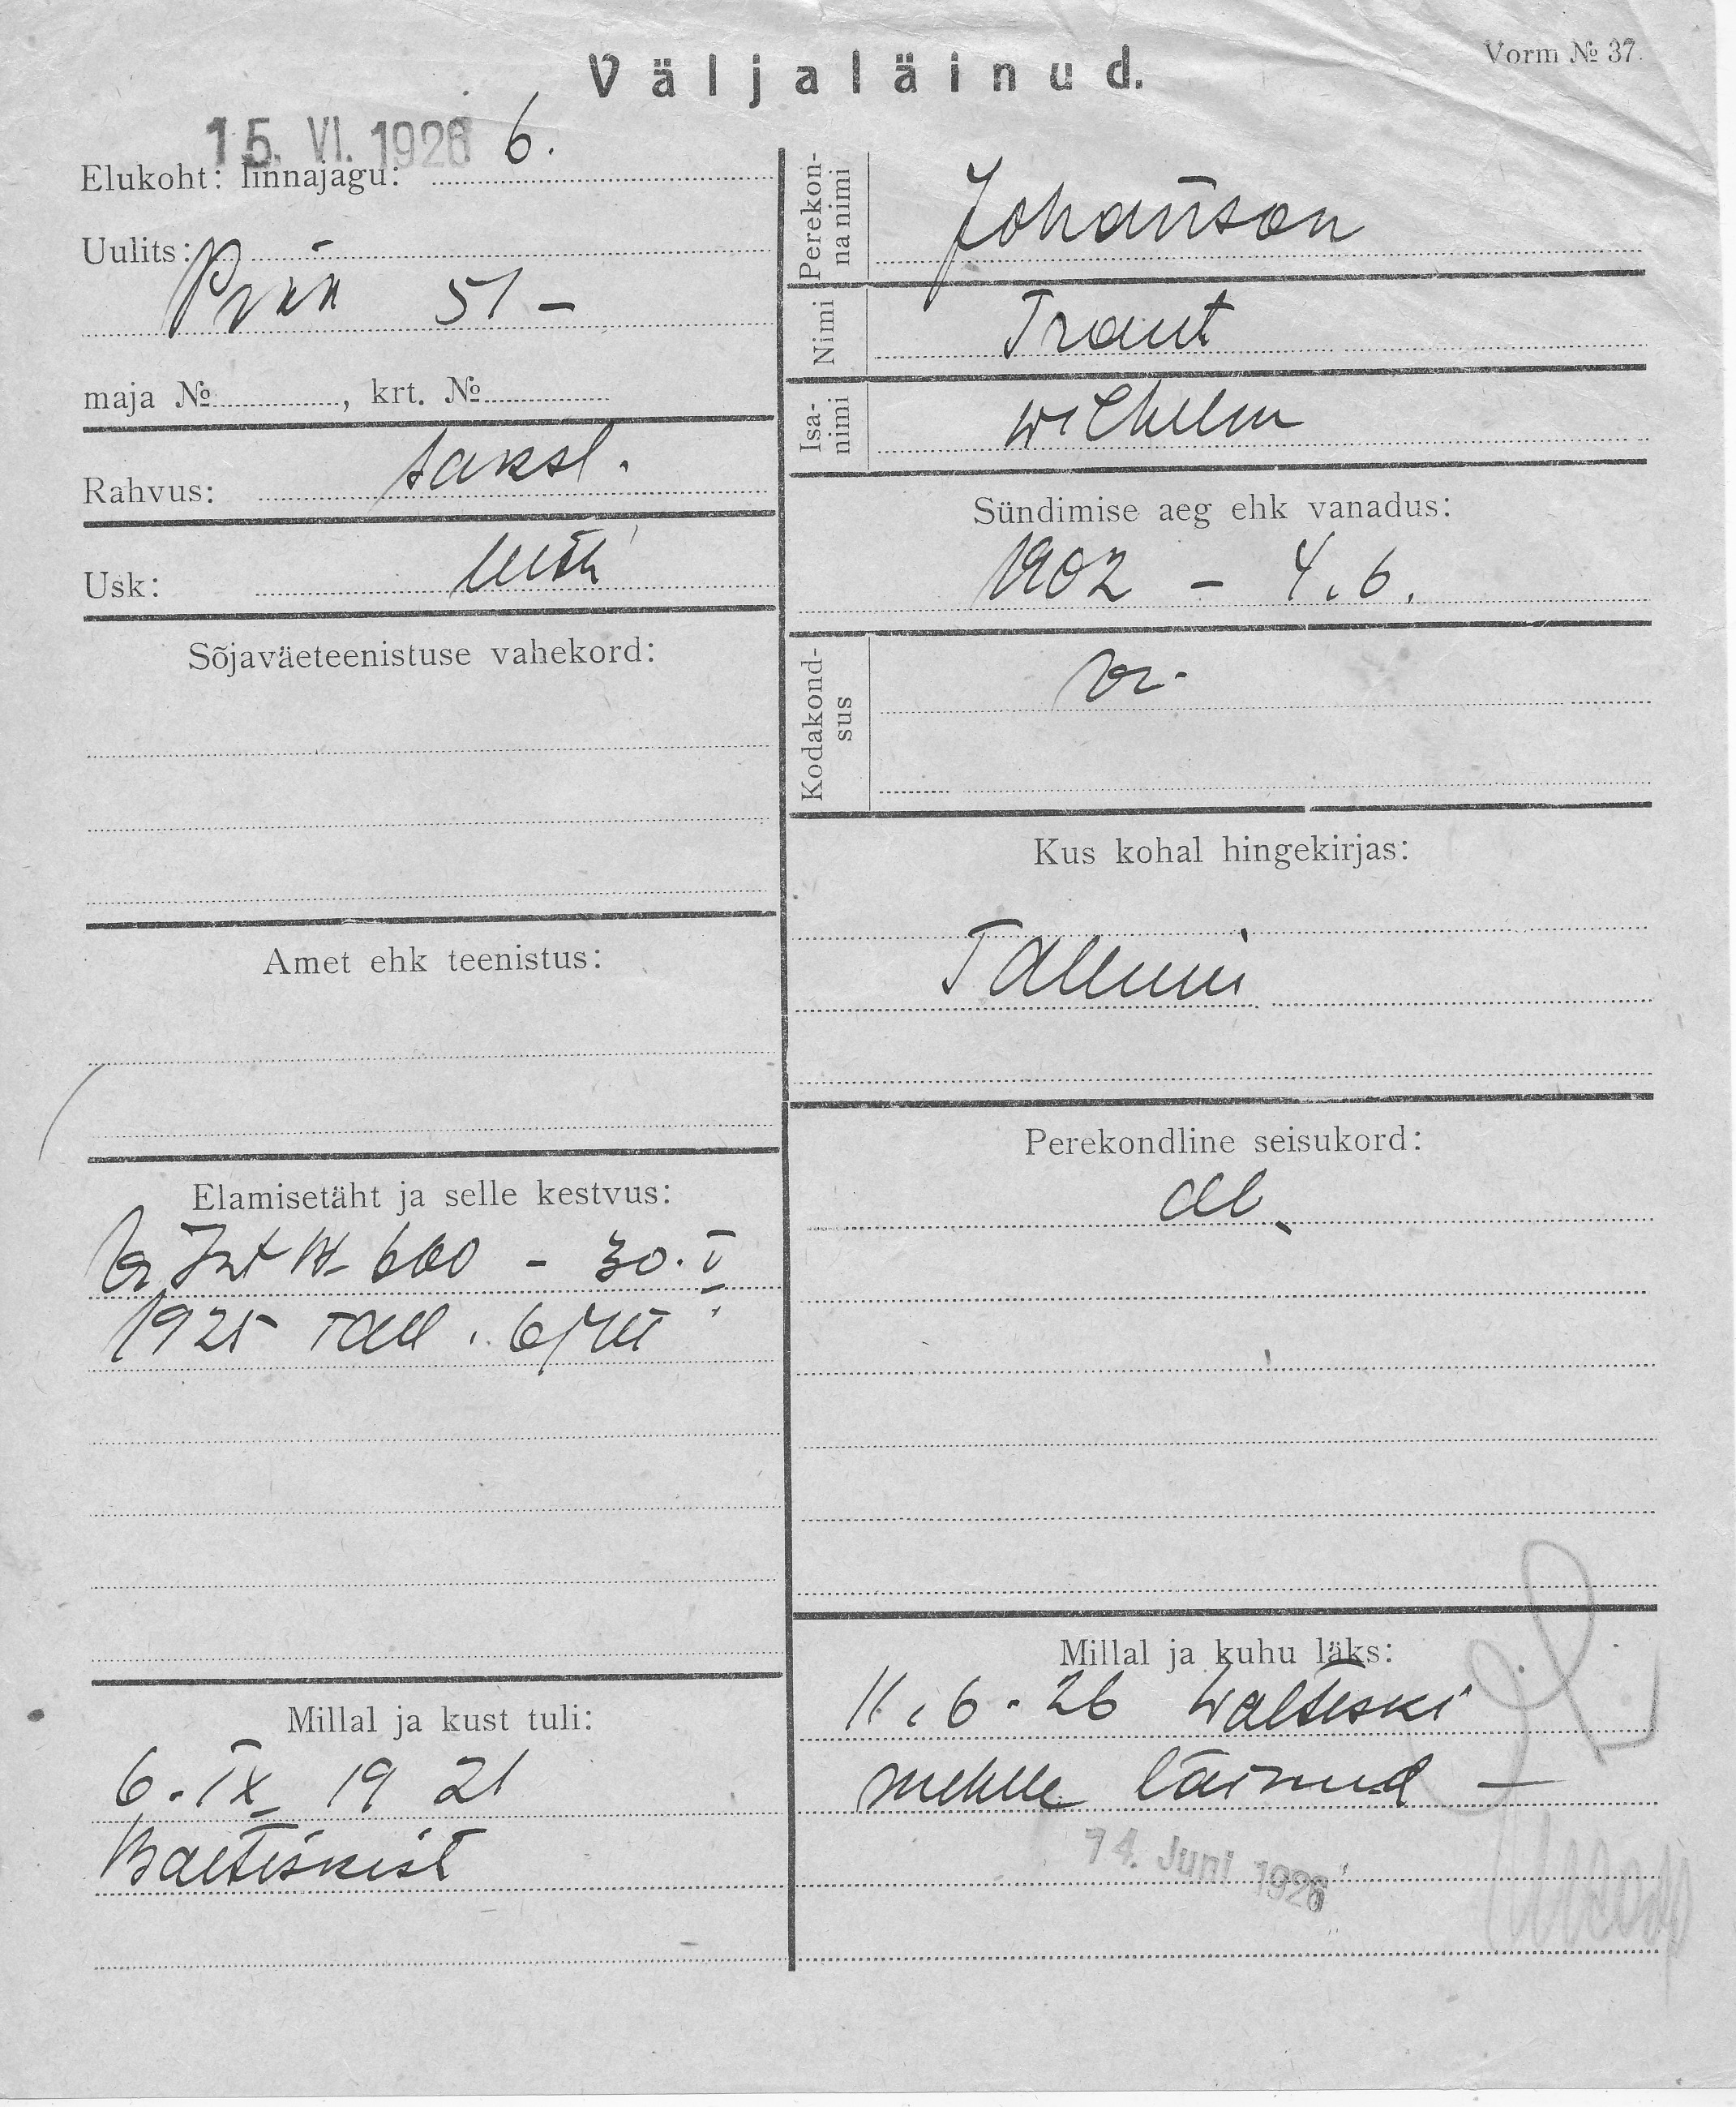 Väljaläinud.
Vorm № 37.
15. VI. 1926
6.
Elukoht: linnajagu:
Uulits:
51 –
maja № , krt. №
Rahvus: saksl.
Usk: luth
Sõjaväeteenistuse vahekord:
Amet ehk teenistus:
Elamisetäht ja selle kestvus:
600 – 30. V
1925 Tall. 6/VII
Millal ja kust tuli:
6. IX 1921
Baltiskist
Perekonna nimi
Johanson
Nimi
Traut
Isanimi
Wilhelm
Sündimise aeg ehk vanadus:
1902 – 4.6.
Kodakondsus
Kus kohal hingekirjas:
Tallinn
Perekondline seisukord:
Millal ja kuhu läks:
11.6.26 Baltiski
mehele läinud –
14. Juni 1926